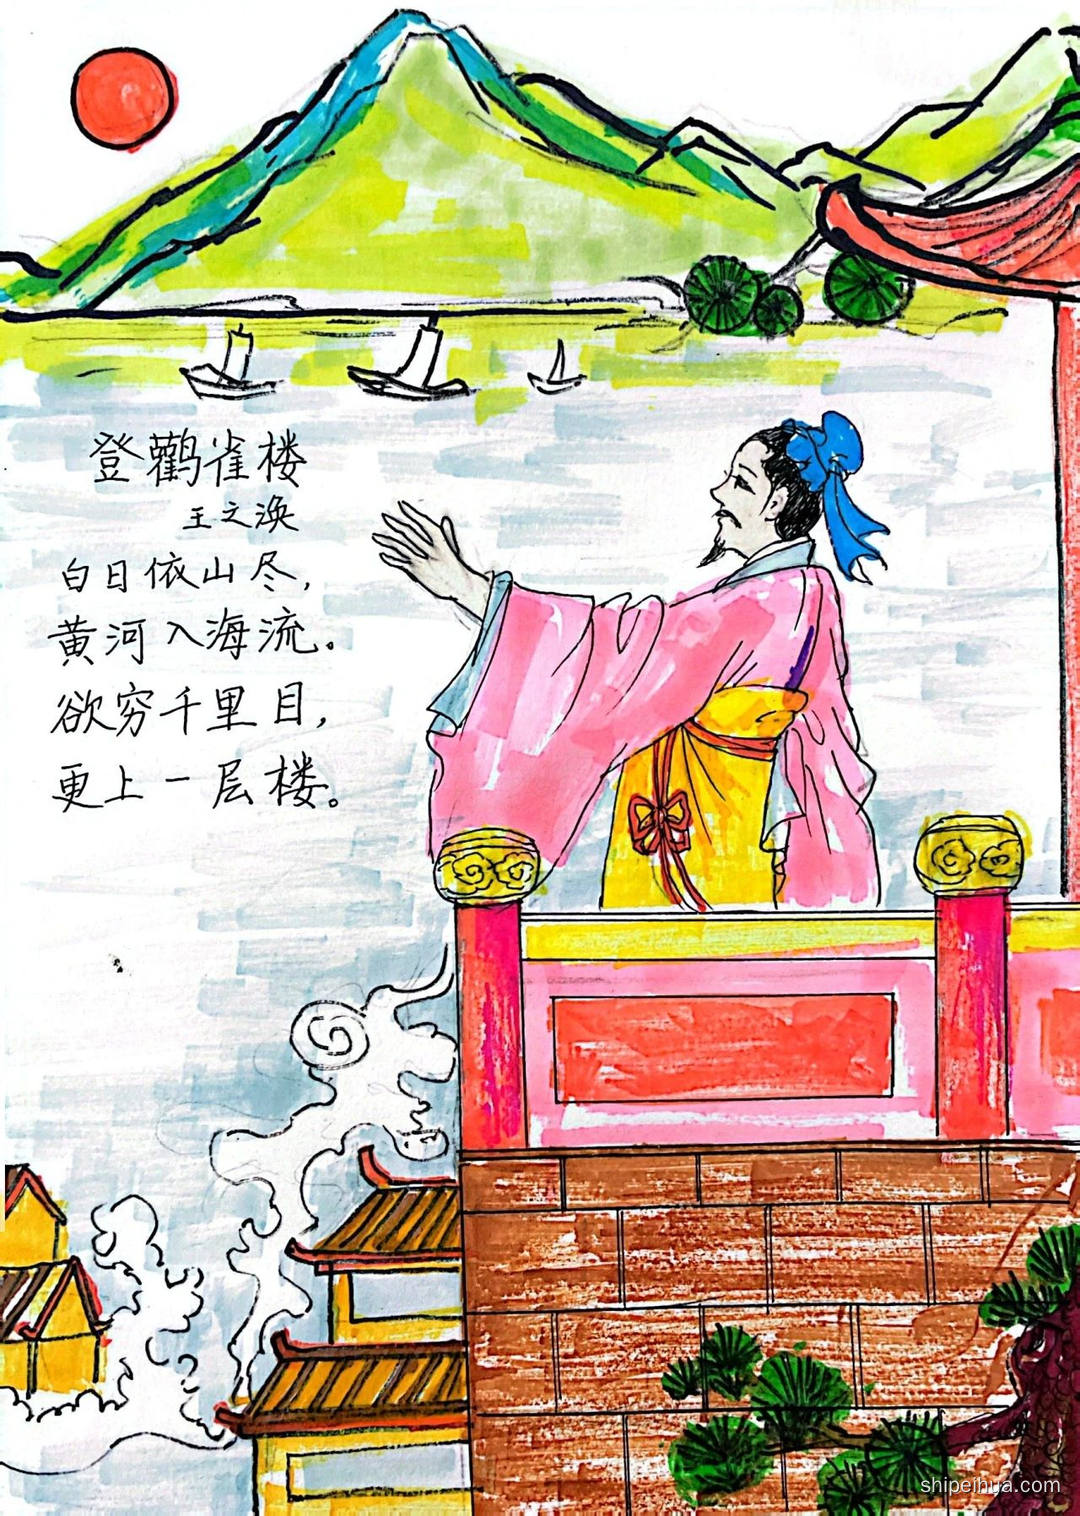 登鹳雀楼
王之涣
白日依山尽，
黄河入海流。
欲穷千里目，
更上一层楼。
shipeihua.com